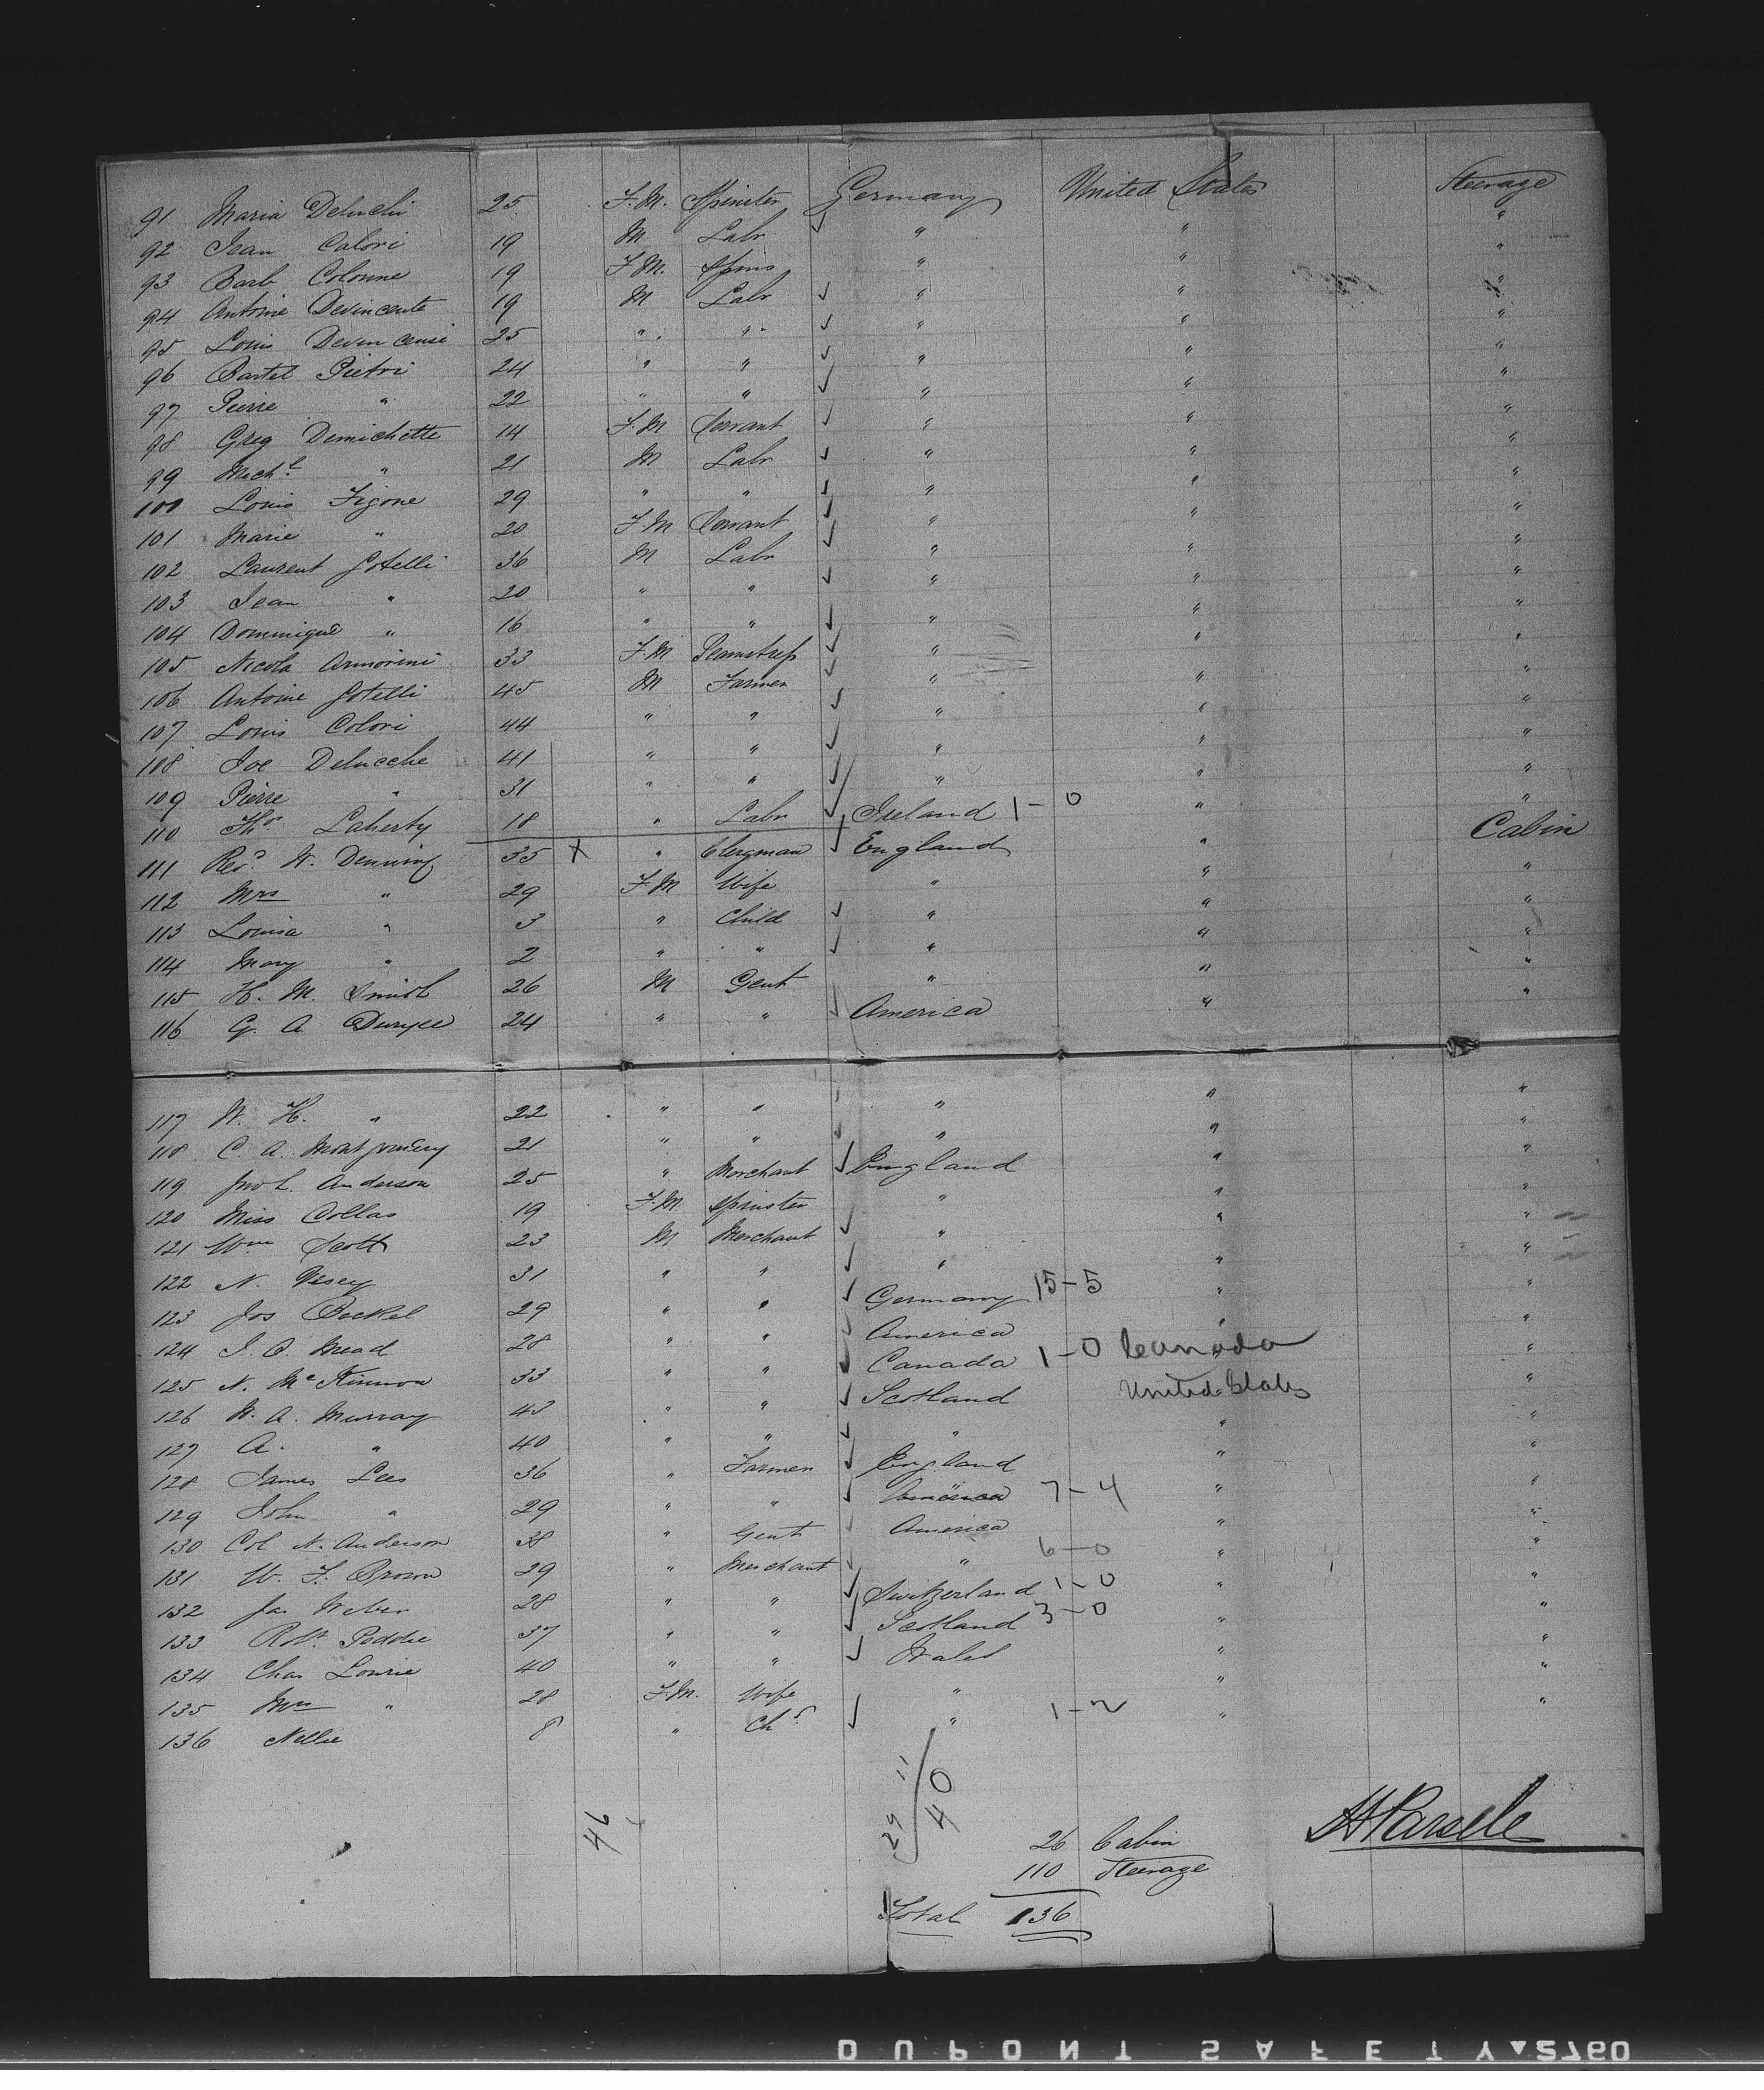 91 Maria Deluchi 25 F.M. Spinster Germany United States Steerage
92 Jean Calori 19 M Labr " " "
93 Barb Colonne 19 F.M. Spins " " "
94 Antoine Devincente 19 M Labr " " "
95 Louis Devincensi 25 " " " " "
96 Bartel Pietri 24 " " " " "
97 Pierre " 22 " " " " "
98 Greg Demichette 14 F.M Servant " " "
99 Machl " 21 M Labr " " "
100 Louis Figone 29 " " " " "
101 Marie " 20 F.M Servant " " "
102 Laurent Gotelli 36 M Labr " " "
103 Jean " 20 " " " " "
104 Dominique " 16 " " " " "
105 Nicola Armorini 33 F.M Seamstress " " "
106 Antoine Gotelli 45 M Farmer " " "
107 Louis Colori 44 " " " " "
108 Joe Delucche 41 " " " " "
109 Pierre " 31 " " " " "
110 Thos Laherty 18 " Labr Ireland 1-0 " "
111 Revd W. Denning 35 X " Clergman England " Cabin
112 Mrs " 29 F.M Wife " " "
113 Louisa " 3 " Child " " "
114 Mary " 2 " " " " "
115 H. M. Smith 26 M Gent " " "
116 G. A. Duryee 24 " " America " "
117 W. H. " 22 " " " " "
118 C. A. Montgomery 21 " " " " "
119 Jno L. Anderson 25 " Merchant England " "
120 Miss Collas 19 F.M Spinster " " "
121 Wm Scott 23 M Merchant " " "
122 N. Vesey 31 " " " " "
123 Jos Beckel 29 " " Germany 15-5 " "
124 J. O. Mead 28 " " America " "
125 N. McKinnon 33 " " Canada 1-0 Canada "
126 W. A. Murray 43 " " Scotland United States "
127 A. " 40 " " " " "
128 James Lees 36 " Farmer England " "
129 John " 29 " " America 7-4 " "
130 Col N. Anderson 38 " Gent America " "
131 W. F. Brown 29 " Merchant " 6-0 " "
132 Jas Weber 28 " " Switzerland 1-0 " "
133 Robt Peddie 37 " " Scotland 3-0 " "
134 Chas Lowrie 40 " " Wales " "
135 Mrs " 28 F.M. Wife " " "
136 Nellie 8 " Chd " 1-2 " "
46
29 11
40
26 Cabin
110 Steerage
Total 136
DUPONT SAFETY 2760